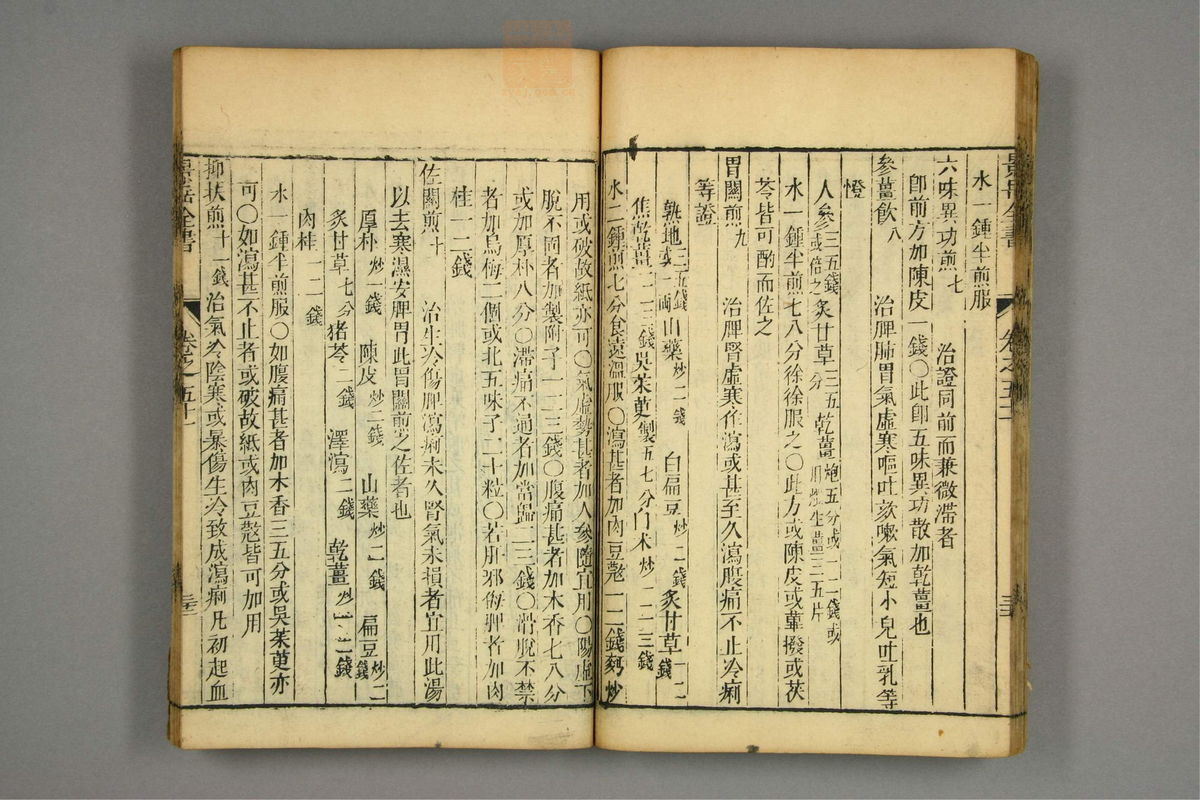 水一鍾半煎服
六味異功煎 七 治證同前而兼微滯者
即前方加陳皮一錢○此即五味異功散加乾薑也
參薑飲 八 治脾肺胃氣虛寒嘔吐欬嗽氣短小兒吐乳等
證
人參三五錢或倍之 炙甘草三五分 乾薑炮五分或一二錢或用煨生薑三五片
水一鍾半煎七八分徐徐服之○此方或陳皮或蓽撥或茯
苓皆可酌而佐之
胃關煎 九 治脾腎虛寒作瀉或甚至久瀉腹痛不止冷痢
等證
熟地三五錢或一兩 山藥炒二錢 白扁豆炒二錢 炙甘草一二錢
焦乾薑一二三錢 吳茱萸製五七分 白朮炒一二三錢
水二鍾煎七分食遠溫服○瀉甚者加肉豆蔻一二錢麪炒
用或破故紙亦可○氣虛勢甚者加人參隨宜用○陽虛下
脫不固者加製附子一二三錢○腹痛甚者加木香七八分
或加厚朴八分○滯痛不通者加當歸二三錢○滑脫不禁
者加烏梅二個或北五味子二十粒○若肝邪侮脾者加肉
桂一二錢
佐關煎 十 治生冷傷脾瀉痢未久腎氣未損者宜用此湯
以去寒濕安脾胃此胃關煎之佐者也
厚朴炒一錢 陳皮炒二錢 山藥炒二錢 扁豆炒二錢
炙甘草七分 猪苓二錢 澤瀉二錢 乾薑炒一二錢
肉桂一二錢
水一鍾半煎服○如腹痛甚者加木香三五分或吳茱萸亦
可○如瀉甚不止者或破故紙或肉豆蔻皆可加用
抑扶煎 十一 治氣冷陰寒或暴傷生冷致成瀉痢凡初起血
景岳全書 卷之五十一